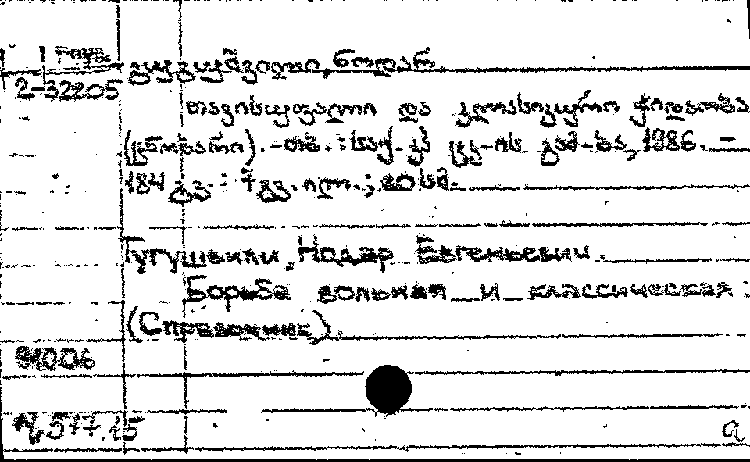 გუგუშვილი, ნოდარ
2-32205
თავისუფალი და კლასიკური ჭიდაობა
(ცნობარი). -თბ. : საქ. კპ ცკ-ის გამ-ბა, 1986. -
184 გვ. : 7 გვ. ილ. ; 20 სმ.
Гугушвили, Нодар Евгеньевич.
Борьба вольная и классическая :
(Справочник).
91006
Ч,577.15
a